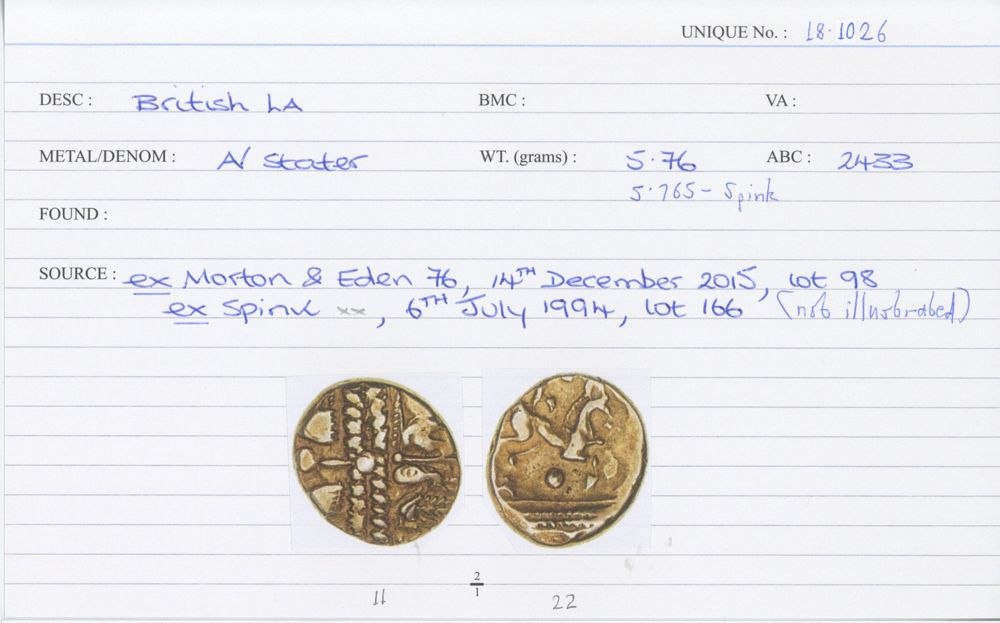 UNIQUE No. : 18.1026
DESC : British LA BMC : VA :
METAL/DENOM : A/ stater WT. (grams) : 5.76 ABC : 2433
5.765 - Spink
FOUND :
SOURCE : ex Morton & Eden 76, 14TH December 2015, lot 98
ex Spink xx, 6TH July 1994, lot 166 (not illustrated)
2
1
11 22